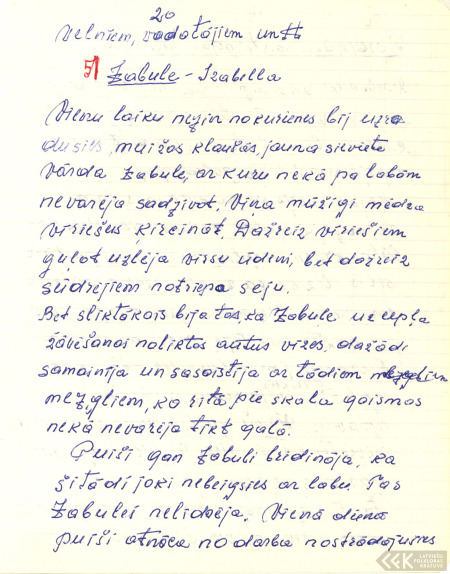 20
velniem, vadatājiem un tt
5) Zabule - Izabella
Vienu laiku nezin no kurienes bij uzra
dusies, muižas klaušās, jauna sieviete
vārdā Zabule, ar kuru nekā pa labam
nevarēja sadzīvot. Viņa mūžīgi mēdza
vīriešus ķircināt. Dažreiz vīriešiem
guļot uzlēja virsu ūdeni, bet dažreiz
sūdrējiem notriepa seju.
Bet sliktākais bija tas, ka Zabule uz cepļa
žāvēšanai noliktos autus vīzes, dažādi
samainīja un sasaistīja ar tādiem
mezgliem, ka rītā pie skala gaismas
nekā nevarēja tikt galā.
Puiši gan Zabuli brīdināja, ka
šitādi joki nebeigsies ar labu. Tas
Zabulei nelīdzēja. Vienā dienā
puiši atnāca no darba nostrādājušies
LATVIEŠU
FOLKLORAS
KRĀTUVE